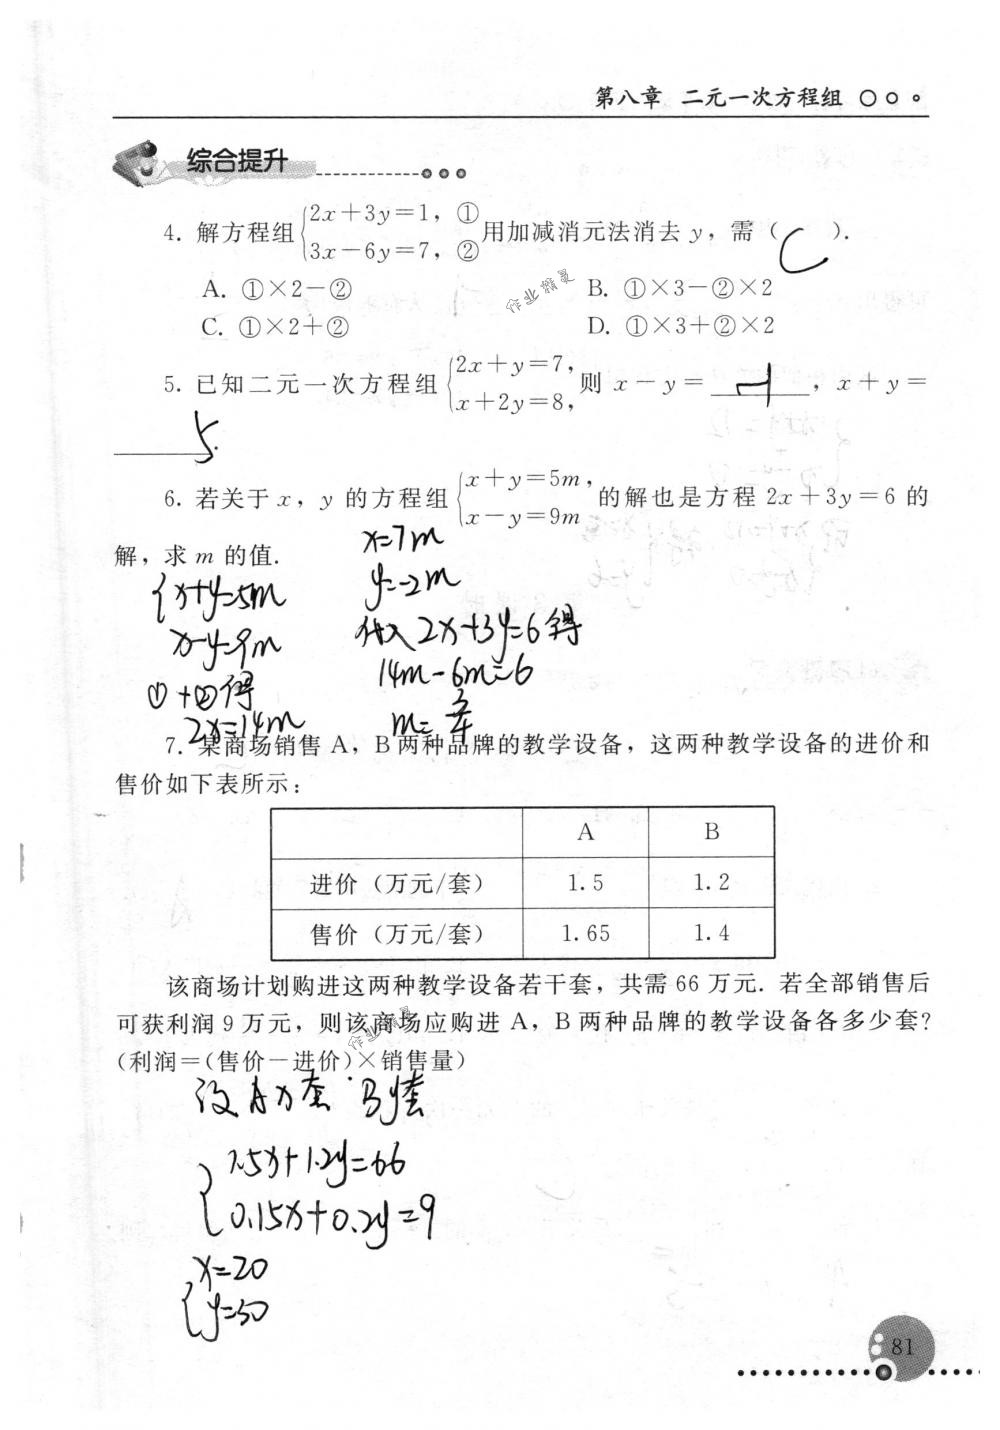 第八章 二元一次方程组
综合提升
4. 解方程组{2x+3y=1, ① 3x-6y=7, ② 用加减消元法消去 y, 需 ( C ).
A. ①×2-② B. ①×3-②×2
C. ①×2+② D. ①×3+②×2
作业精灵
5. 已知二元一次方程组{2x+y=7, x+2y=8, 则 x-y= -1 , x+y=
5.
6. 若关于 x, y 的方程组{x+y=5m, x-y=9m 的解也是方程 2x+3y=6 的
解, 求 m 的值.
{x+y=5m
x-y=9m
①+②得
2x=14m
x=7m
y=-2m
代入2x+3y=6得
14m-6m=6
m=3/4
7. 某商场销售 A, B 两种品牌的教学设备, 这两种教学设备的进价和
售价如下表所示:
A B
进价 (万元/套) 1.5 1.2
售价 (万元/套) 1.65 1.4
该商场计划购进这两种教学设备若干套, 共需 66 万元. 若全部销售后
可获利润 9 万元, 则该商场应购进 A, B 两种品牌的教学设备各多少套?
作业精灵
(利润=(售价-进价)×销售量)
设A x套 B y套
{1.5x+1.2y=66
0.15x+0.2y=9
{x=20
y=30
81